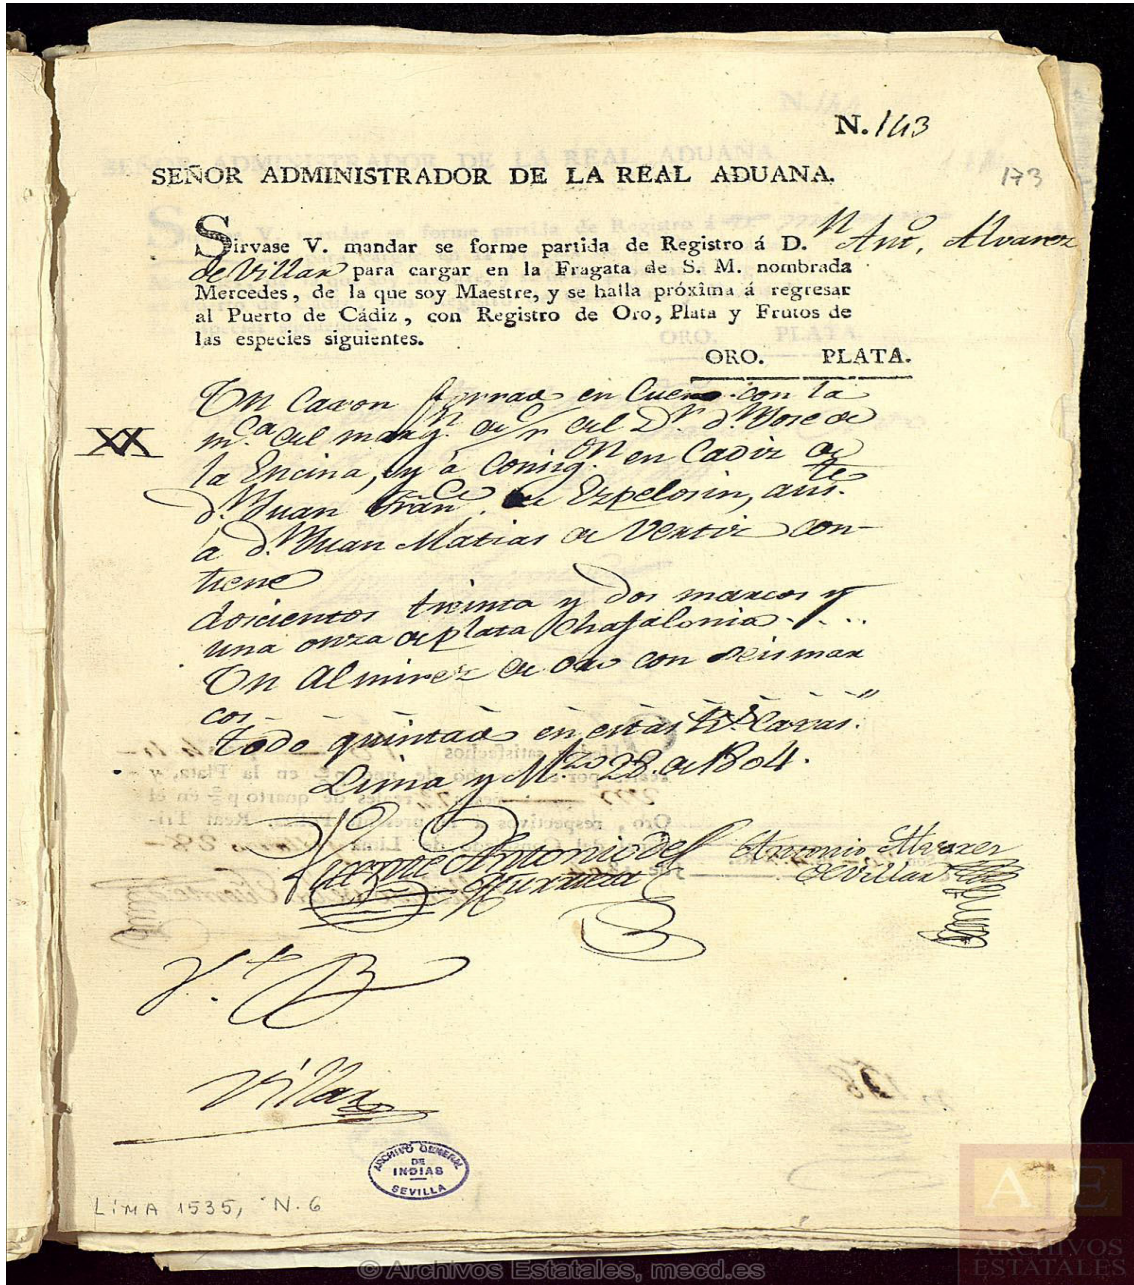 N. 143
173
SEÑOR ADMINISTRADOR DE LA REAL ADUANA.
Sirvase V. mandar se forme partida de Registro á D.n Ant.o Alvarez
de Villar para cargar en la Fragata de S. M. nombrada
Mercedes, de la que soy Maestre, y se halla próxima á regresar
al Puerto de Cádiz, con Registro de Oro, Plata y Frutos de
las especies siguientes.
ORO. PLATA.
Un Caxon forrado en Cuero con la
m.ca del marg.n de del D.r d.n Jose de
la Encina, y á Consig.on en Cadiz de
d.n Juan Fran.co de Ezpelosin, aus.te
á d.n Juan Matias de Vertiz con-
tiene
doscientos treinta y dos marcos y
una onza de plata Chafalonia
Un Almirez de oro con seis mar
cos
todo quintado en estas R.s Caxas.
Lima y M.zo 28 de 1804.
Antonio Alvarez
del Villar
V.to B
Villar
ARCHIVO GENERAL
DE
INDIAS
SEVILLA
LIMA 1535, N. 6
A E
ARCHIVOS
ESTATALES
© Archivos Estatales, mecd.es